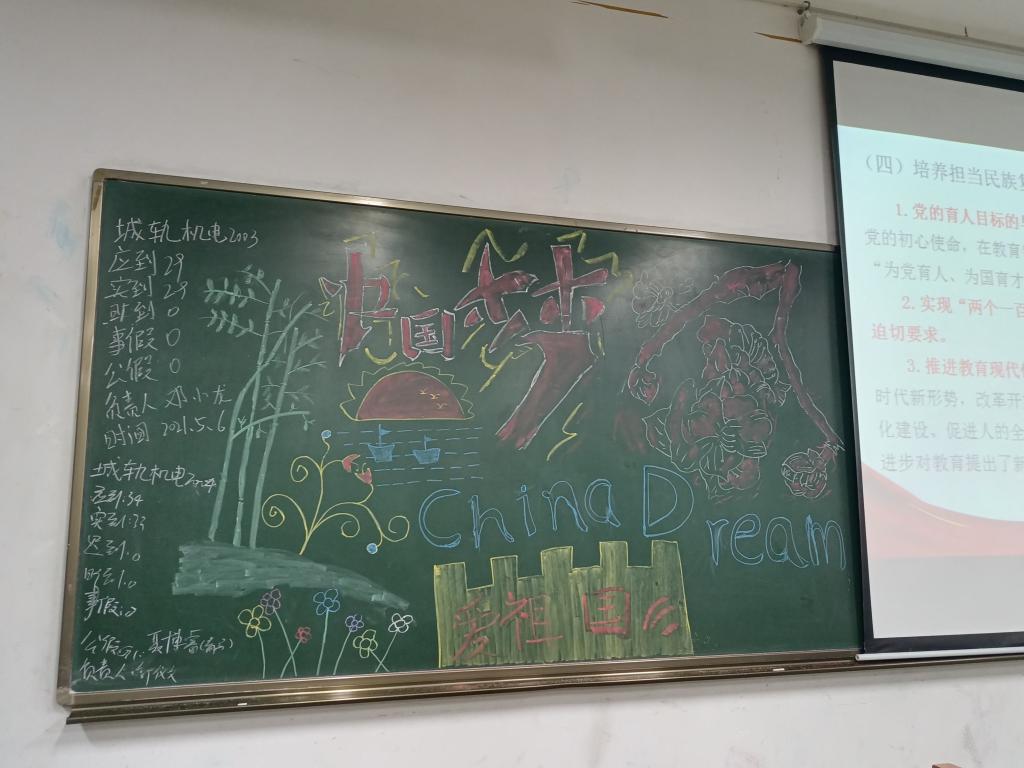 城轨机电2003
应到 29
实到 29
迟到 0
事假 0
公假 0
负责人 邓小龙
时间 2021.5.6
城轨机电2004
应到:34
实到:33
迟到:0
事假:0
负责人
中国梦
China Dream
爱祖国
(四)培养担当民族
1.党的育人目标的
党的初心使命，在教育
“为党育人、为国育才
2.实现“两个一百
迫切要求。
3.推进教育现代
时代新形势，改革开
化建设、促进人的全
进步对教育提出了新